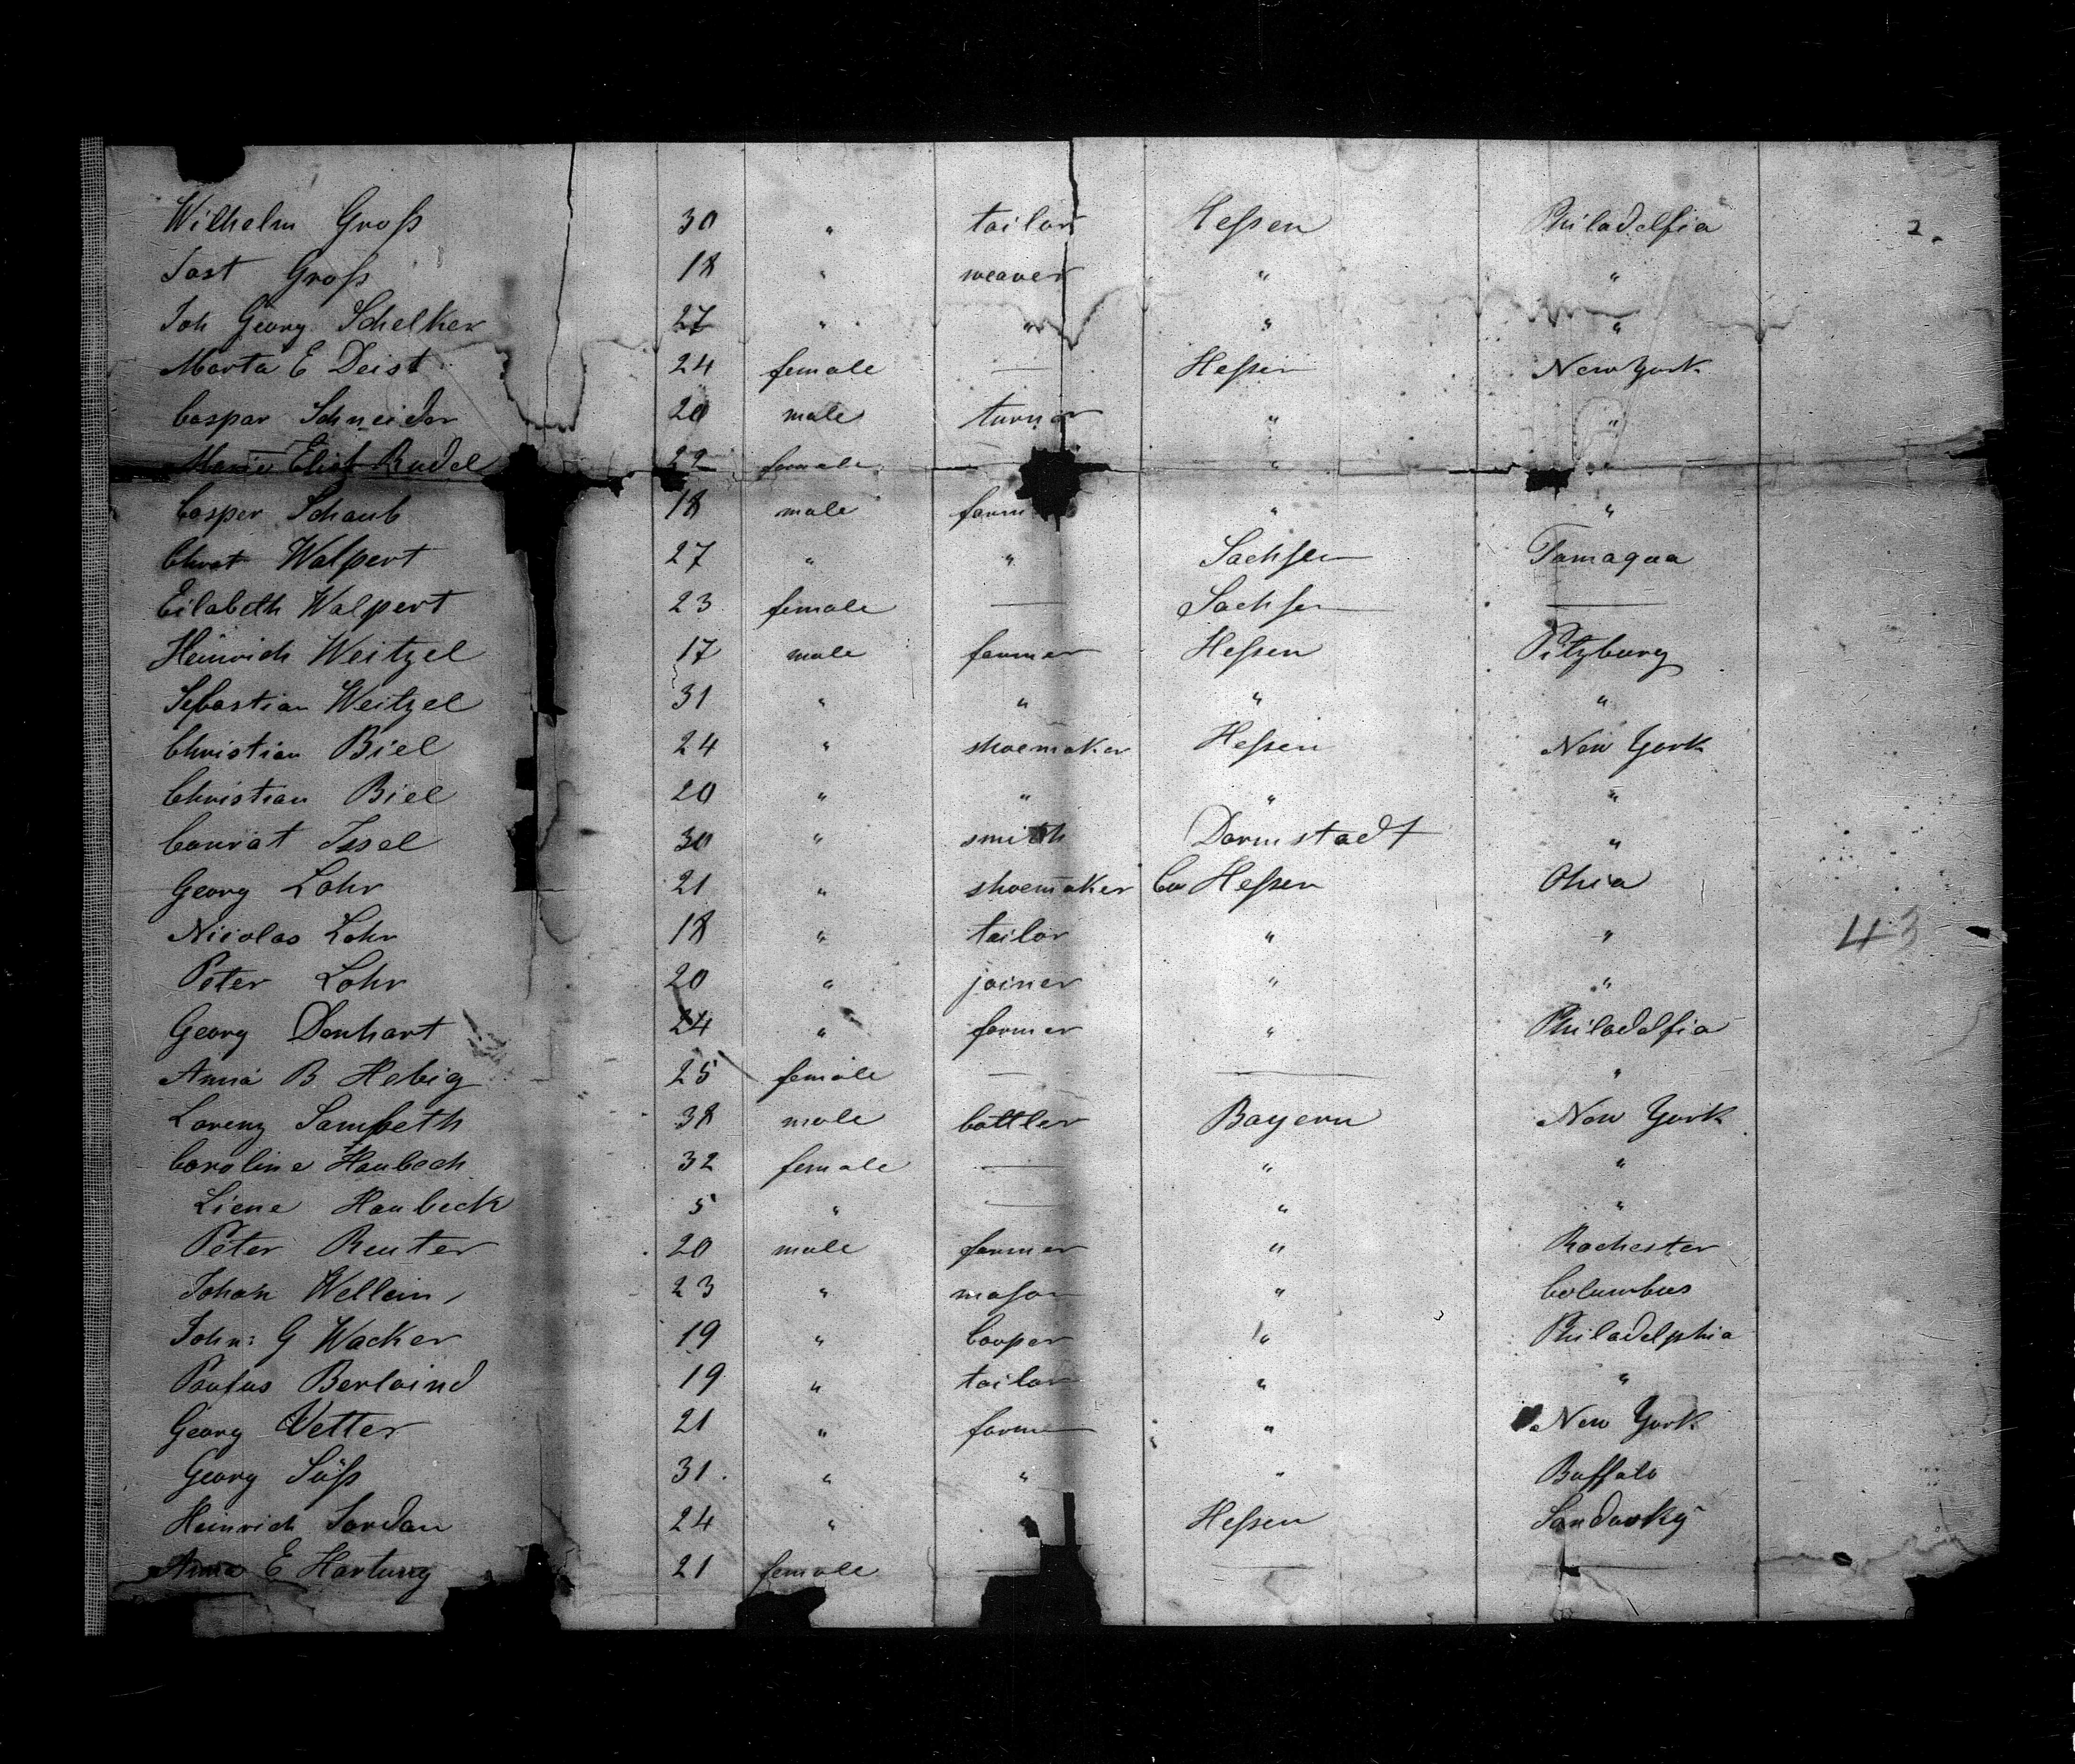 Wilhelm Groß 30 " tailor Hessen Philadelfia 2.
Jost Groß 18 " weaver " "
Joh Georg Schelker 27 " " " "
Marta E Deist 24 female — Hessen New York
Caspar Schneider 20 male turner " "
Marie Elist Rudel 22 female " "
Casper Schaub 18 male farm " "
Christ Walpert 27 " " Sachsen Tamaqua
Eilabeth Walpert 23 female — Sachsen —
Heinrich Weitzel 17 male farmer Hessen Pitzburg
Sebastian Weitzel 31 " " " "
Christian Biel 24 " shoemaker Hessen New York
Christian Biel 20 " " " "
Conrat Issel 30 " smith Darmstadt "
Georg Lohr 21 " shoemaker Hessen Ohio
Nicolas Lohr 18 " tailor " "
43
Peter Lohr 20 " joiner " "
Georg Denhart 24 " farmer " Philadelfia
Anna B Hebig 25 female — — "
Lorenz Sambeth 38 male bottler Bayern New York
Caroline Haubech 32 female — " "
Liene Haubeck 5 " — " "
Peter Reuter 20 male farmer " Rochester
Johan Wellein 23 " mason " Columbus
John: G Wacker 19 " Cooper " Philadelphia
Paulus Berlaind 19 " tailor " "
Georg Vetter 21 " farmer " New York
Georg Süß 31 " " " Buffalo
Heinrich Jordan 24 " " Hessen Sandusky
Anna E Hartung 21 female — — —